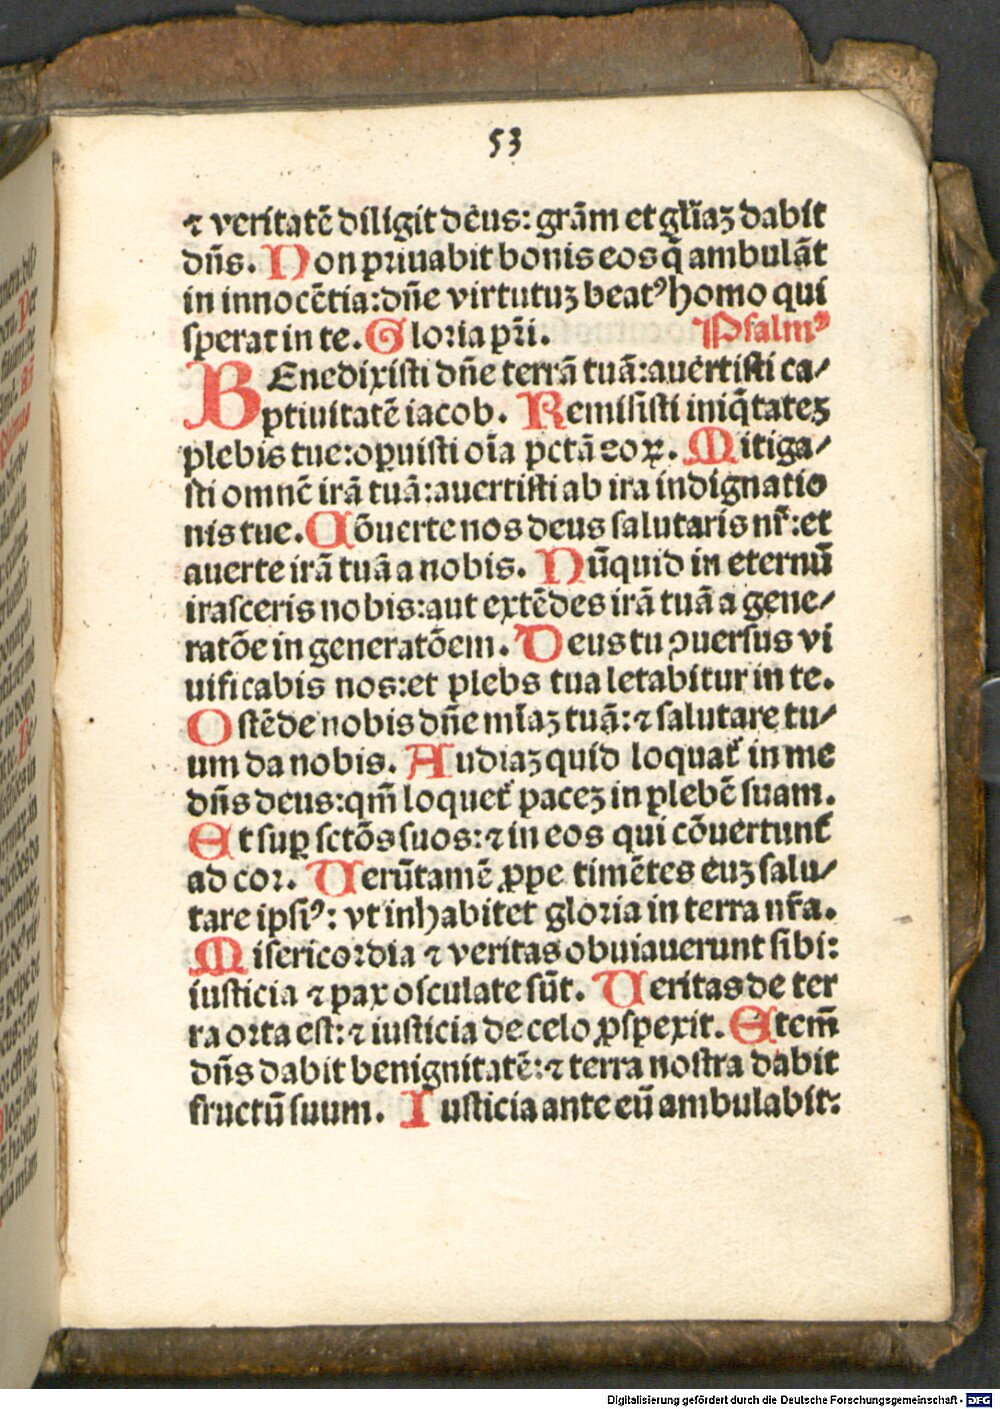 53
⁊ veritatē diligit deus: grãm et gl̃iaꝫ dabit
dñs. Non priuabit bonis eos q̃ ambulãt
in innocẽtia:dñe virtutuꝫ beatꝰ homo qui
sperat in te. Gloria pr̃i. Psalmꝰ
BEnedixisti dñe terrã tuã:auertisti ca/
ptiuitatẽ iacob. Remisisti iniq̃tateꝫ
plebis tue:opuisti oĩa pctã eoꝝ. Mitiga/
sti omnẽ irã tuã:auertisti ab ira indignatio
nis tue. Cõuerte nos deus salutaris nr̃:et
auerte irã tuã a nobis. Nũquid in eternũ
irasceris nobis:aut extẽdes irã tuã a gene/
ratõe in generatõem. Deus tu ꝯuersus vi
uificabis nos:et plebs tua letabitur in te.
Ostẽde nobis dñe mĩaꝫ tuã:⁊ salutare tu/
um da nobis. Audiaꝫ quid loquat̃ in me
dñs deus:qm̃ loquet̃ paceꝫ in plebẽ suam.
Et suꝑ sctõs suos:⁊ in eos qui cõuertunt̃
ad cor. Uerũtamẽ ꝓpe timẽtes euꝫ salu/
tare ipsiꝰ: vt inhabitet gloria in terra nr̃a.
Misericordia ⁊ veritas obuiauerunt sibi:
iusticia ⁊ pax osculate sũt. Ueritas de ter
ra orta est:⁊ iusticia de celo ꝓspexit. Etem̃
dñs dabit benignitatẽ:⁊ terra nostra dabit
fructũ suum. Iusticia ante eũ ambulabit:
Digitalisierung gefördert durch die Deutsche Forschungsgemeinschaft - DFG